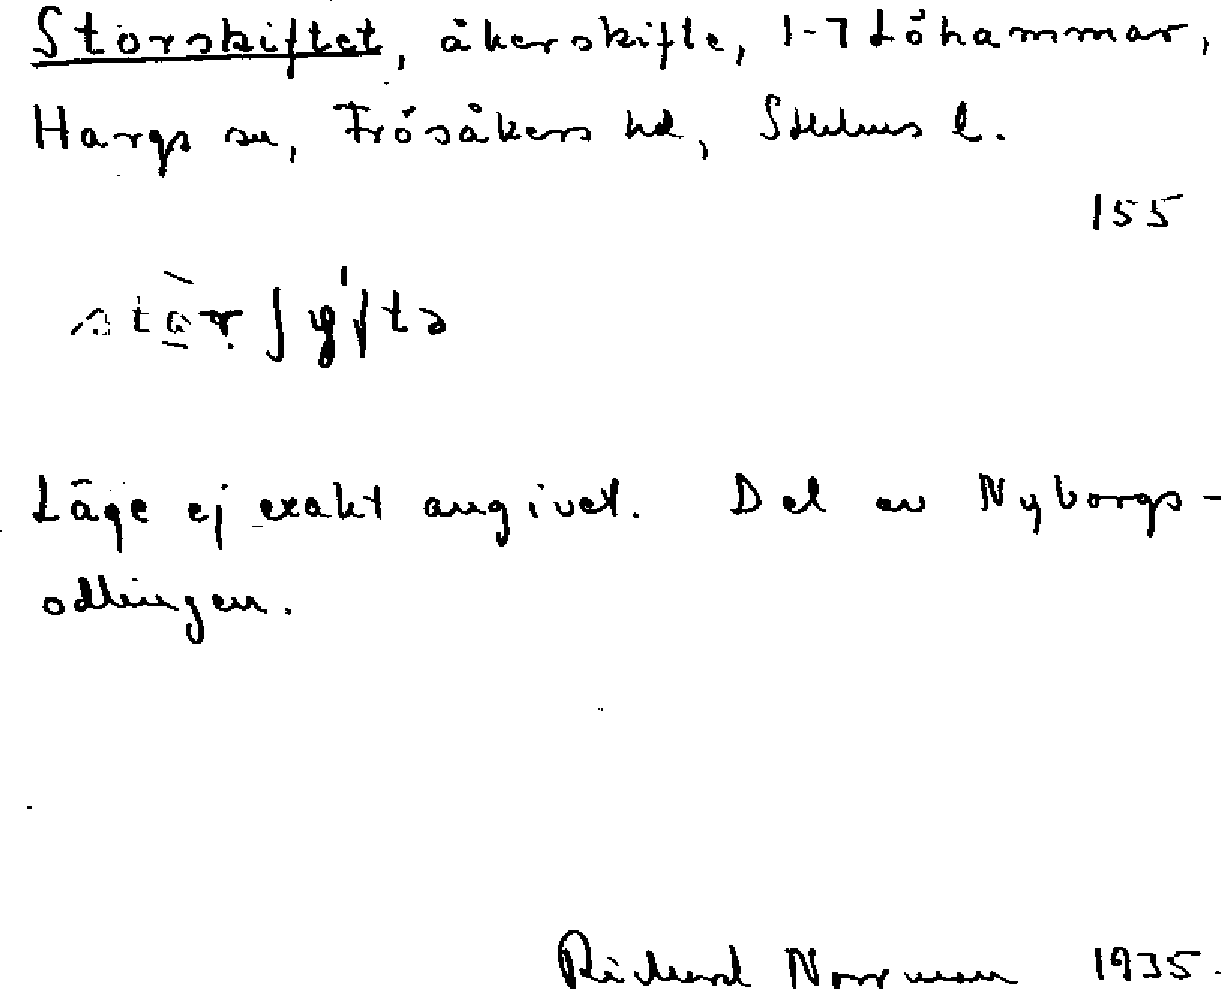 Storskiftet, åkerskifte, 1-7 Löhammar,
Hargs sn, Frösåkers hd, Sthlms l.
155
Läge ej exakt angivet. Del av Nyborgs-
odlingen.
Richard Norrman 1935.